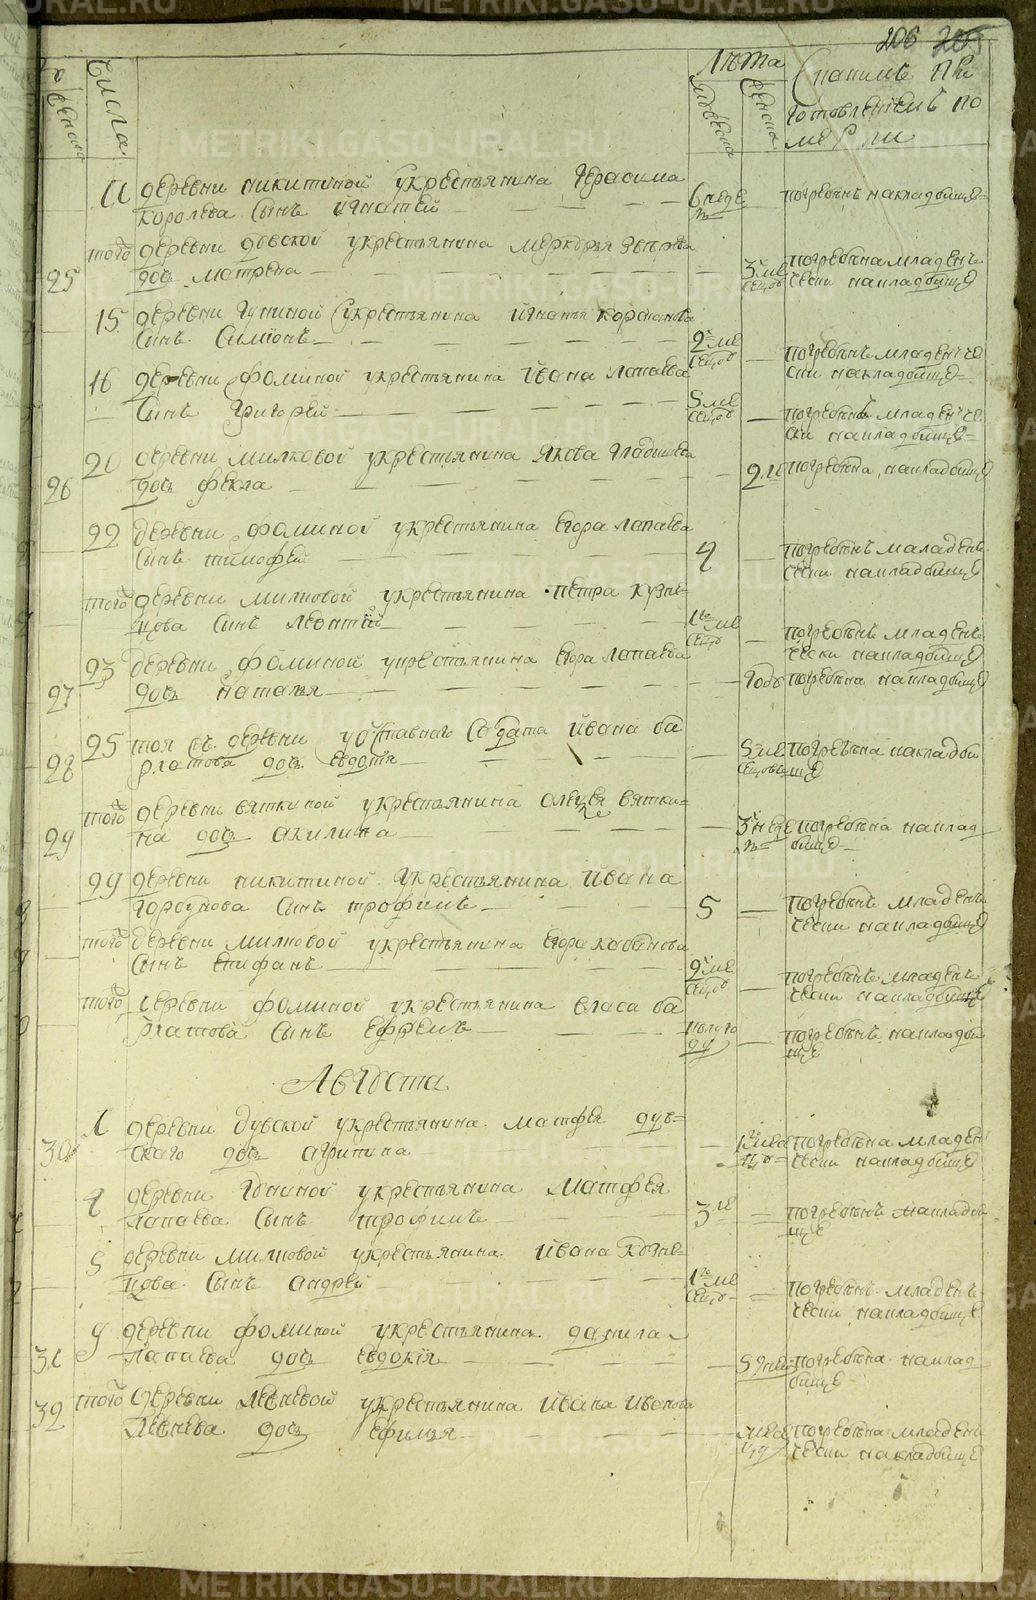 206 205
числа
Лѣта
женска
с какимъ при
готовлениемъ по
мерли
11 деревни никитиной укрестьянина герасима
королева сынъ игнатей
6 неде
погребенъ накладбище
того деревни дувской укрестьянина меркурья
25 дочь матрена
3 ме
сецов
погребена младенъ
чески накладбище
15 деревни гуниной укрестьянина игнатья
сынъ симионъ
2 ме
сецов
погребенъ младенче
ски накладбище
16 деревни фоминой укрестьянина ивана лопаева
сынъ григорей
5 ме
сецов
погребенъ младенче
ски накладбище
20 деревни милковой укрестьянина якова
26 дочь фекла
2 погребена накладбище
22 деревни фоминой укрестьянина егора лапаева
сынъ тимофей
погребенъ маладенъ
чески накладбище
того деревни милковой укрестьянина петра кузне
цова сынъ леонтий
1 ме
сецов
погребенъ младенъ
чески накладбище
23 деревни фоминой укрестьянина егора лапаева
27 дочь наталья
годъ погребена накладбище
25 тоя ж деревни у отставнаго салдата ивана ба
28 рлатова дочь евдотя
5 ме
сецовъ
погребена накладби
ще
того деревни вяткиной укрестьянина алецея вятки
29 на дочь акилина
3 неде
погребена наклад
бище
29 деревни никитиной укрестьянина ивана
горбунова сынъ трофимъ
5
погребенъ младенъ
чески накладбище
того деревни милковой укрестьянина егора кабанова
сынъ епифанъ
2 ме
сецов
погребенъ младенъ
чески накладбище
того деревни фоминой укрестьянина власа ба
рлатова сынъ ефремъ
полуго
ду
погребенъ накладби
ще
Августа
1 деревни дувской укрестьянина матфея дув
30 скаго дочь агрипина
погребена младен
чески накладбище
2 деревни гуниной укрестьянина матфея
лапаева сынъ трофимъ
3
погребенъ накладби
ще
5 деревни милковой укрестьянина ивана кузне
цова сынъ андрей
1 ме
сецов
погребенъ младенъ
чески накладбище
9 деревни фоминой укрестьянина данила
31 лапаева дочь евдокия
5 дней
погребена наклад
бище
того деревни левневой укрестьянина ивана иванова
32 левнева дочь ефимья
погребена младен
чески накладбище
METRIKI.GASO-URAL.RU